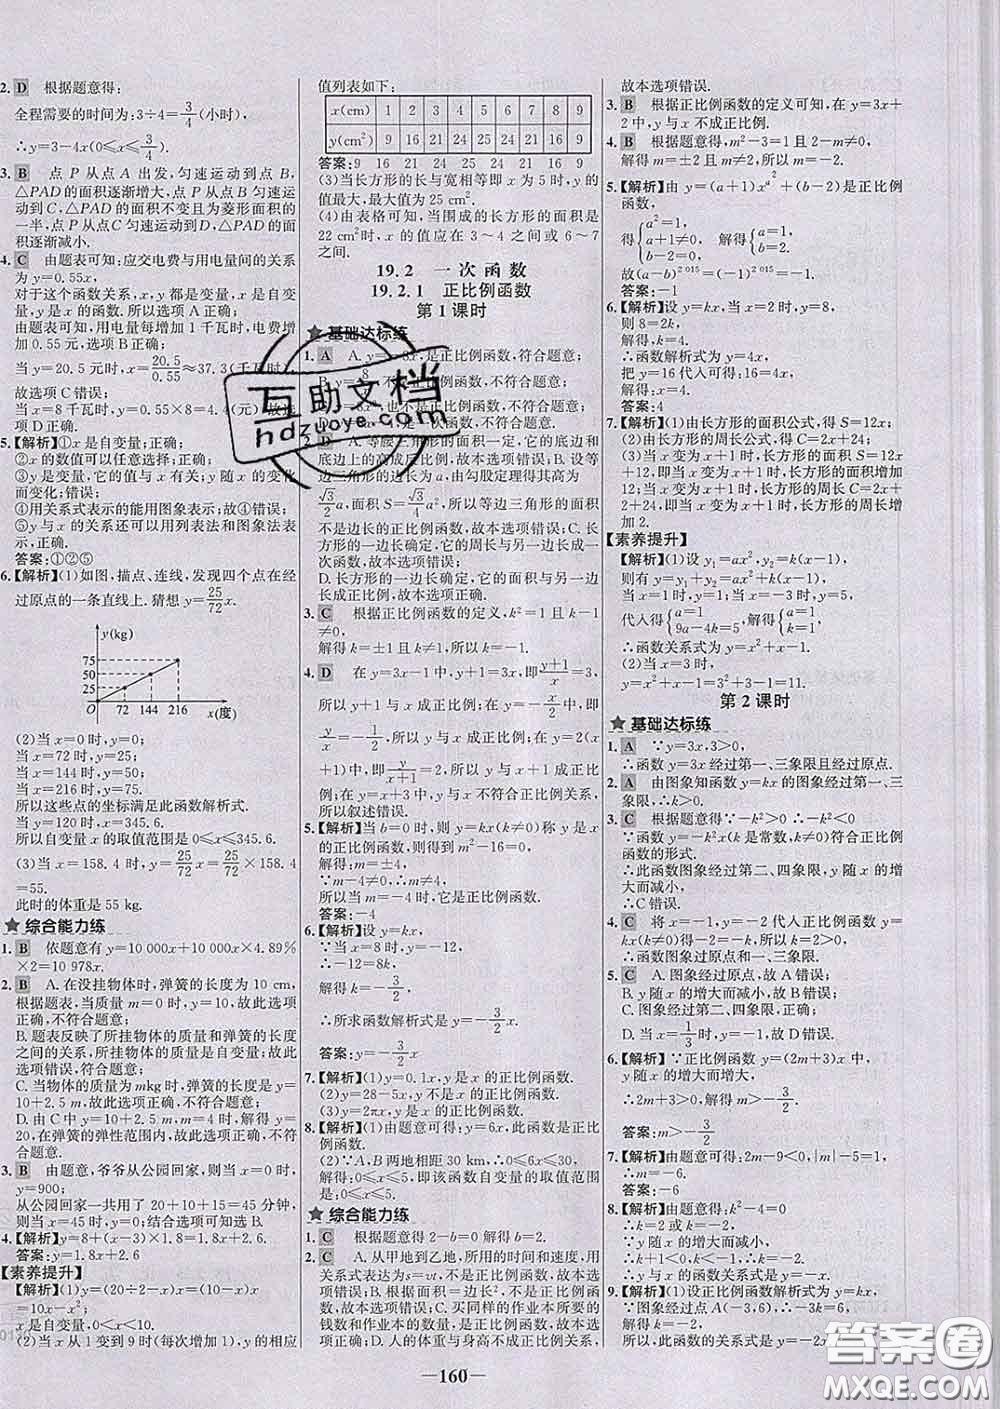 2. D 根据题意得:
全程需要的时间为:3÷4=3/4(小时)
∴y=3-4x(0≤x≤3/4).
3. B 点 P 从点 A 出发,匀速运动到点 B,
△PAD的面积逐渐增大,点 P 从点B 匀速运
动到C 点,△PAD 的面积不变且为菱形面积的
一半,点 P 从点C 匀速运动到D,△PAD 的面
积逐渐减小.
4. C 由题表可知:应交电费与用电量间的关系
为 y=0.55x.
对于这个函数关系,x 和 y 都是变量,x 是自变
量,y 是 x 的函数.所以选项 A 正确;
由题表可知,用电量每增加 1 千瓦时,电费增
加 0.55 元,故选项 B 正确;
当 y=20.5 元时,x=20.5/0.55≈37.3(千瓦时)
故选项C 错误;
当x=8千瓦时,y=0.55×8=4.4(元)故选
项D 正确.
5.【解析】①x 是自变量;正确;
②x 的数值可以任意选择;正确;
③y 是变量,它的值与 x 有关;y 随 x 的变化
而变化;错误;
④用关系式表示的能用图象表示;故④错误;
⑤y 与x 的关系可以用列表法和图象法表
示,正确.
答案:①②⑤
6.【解析】(1)如图,描点、连线,发现四个点在经
过原点的一条直线上.猜想 y=25/72 x.
y(kg)
75
50
25
O 72 144 216 x(度)
(2)当 x=0 时,y=0;
当 x=72 时,y=25;
当 x=144 时,y=50;
当 x=216 时,y=75.
所以这些点的坐标满足此函数解析式.
当 y=120 时,x=345.6.
所以自变量 x 的取值范围是 0≤x≤345.6.
(3)当 x=158.4 时,y=25/72 x=25/72×158.4
=55.
此时的体重是 55 kg.
★ 综合能力练
1. B 依题意有 y=10 000x+10 000x×4.89%
×2=10 978x.
2. B A.在没挂物体时,弹簧的长度为 10 cm,
根据题表,当质量 m=0 时,y=10,故此选项
正确,不符合题意;
B.题表反映了所挂物体的质量和弹簧的长度
之间的关系,所挂物体的质量是自变量;故此
选项错误,符合题意;
C.当物体的质量为mkg时,弹簧的长度是 y=
10+2.5 m,故此选项正确,不符合题意;
D.由 C 中 y=10+2.5 m,m=4 时,解得 y=
20,在弹簧的弹性范围内,故此选项正确,不符
合题意.
3. B 由题意,爷爷从公园回家,则当 x=0 时,
y=900;
从公园回家一共用了 20+10+15=45 分钟,
则当 x=45 时,y=0;结合选项可知选 B.
4.【解析】y=8+(x-3)×1.8=1.8x+2.6
答案:y=1.8x+2.6
【素养提升】
【解析】(1)y=(20÷2-x)x=(10-x)x
=10x-x².
x 是自变量,0<x<10.
(2)当 x 从 1 变到 9 时(每次增加 1),y 的相应
值列表如下:
x(cm) 1 2 3 4 5 6 7 8 9
y(cm²) 9 16 21 24 25 24 21 16 9
答案:9 16 21 24 25 24 21 16 9
(3)当长方形的长与宽相等即 x 为 5 时,y 的
值最大,最大值为 25 cm².
(4)由表格可知,当围成的长方形的面积是
22 cm² 时,x 的值应在 3~4 之间或 6~7
之间.
19.2 一次函数
19.2.1 正比例函数
第 1 课时
★ 基础达标练
1. A A.y=-8x,是正比例函数,符合题意;
2. D A.等腰
底边上的高成反比,故本选项错误;B.设等
边三角形的边长为 a,由勾股定理得其高为
√3/2 a,面积 S=√3/4 a²,所以等边三角形的面积
不是边长的正比例函数,故本选项错误;C.长
方形的一边长确定,它的周长与另一边长成一
次函数,故本选项错误;
D.长方形的一边长确定,它的面积与另一边
长成正比例,故本选项正确.
3. C 根据正比例函数的定义,k²=1 且 k-1
≠0,
解得 k=±1 且 k≠1,所以 k=-1.
4. D 在 y=3x-1 中,y+1=3x,即(y+1)/x=3,
所以 y+1 与 x 成正比例;在 y=-x/2 中,
y/x=-1/2,所以 y 与 x 成正比例;在 y=2(x
+1)中,即y/(x+1)=2,所以 y 与 x+1 成正比
例;在 y=x+3 中,y 与 x 不符合正比例关系,
所以叙述错误.
5.【解析】当 b=0 时,y=kx(k≠0)称 y 是 x
的正比例函数,则得到 m²-16=0,
解得:m=±4,
∵m-4≠0,∴m≠4,
所以当 m=-4 时,y 是 x 的正比例函数.
答案:-4
6.【解析】设 y=kx,
∵当 x=8 时,y=-12,
∴-12=8k,
解得 k=-3/2,
∴所求函数解析式是 y=-3/2 x.
答案:y=-3/2 x
7.【解析】(1)y=0.1x,y 是 x 的正比例函数.
(2)y=28-5x,y 不是 x 的正比例函数.
(3)y=2πx,y 是 x 的正比例函数.
8.【解析】(1)由题意可得:y=6x,此函数是正比
例函数.
(2)∵A,B 两地相距 30 km,∴0≤6x≤30,
解得:0≤x≤5,即该函数自变量的取值范围
是:0≤x≤5.
★ 综合能力练
1. C 根据题意得 2-b=0 解得 b=2.
2. C A.从甲地到乙地,所用的时间和速度,用
关系式表达为s=vt,不是正比例函数,故本选
项错误;B.根据面积=边长²,不是正比例函
数,故本选项错误;C.买同样的作业本所要的
钱数和作业本的数量,是正比例函数,故本选项
正确;D.人的体重与身高不成正比例关系,
故本选项错误.
3. B 根据正比例函数的定义可知,在 y=3x+
2 中,y 与 x 不成正比例.
4. B 根据题意得:m²-3=1 且 m-2≠0,
解得 m=±2 且 m≠2,所以 m=-2.
5.【解析】由 y=(a+1)x^(a²)+(b-2)是正比例
函数,
得{a²=1 b-2=0 a+1≠0,解得{a=1 b=2.
故(a-b)^2015=(1-2)^2015=-1.
答案:-1
6.【解析】设 y=kx,当 x=2 时,y=8,
则 8=2k,
解得,k=4.
∴函数解析式为 y=4x,
把 y=16 代入可得:16=4x,
解得:x=4.
答案:4
7.【解析】(1)由长方形的面积公式,得 S=12x;
(2)由长方形的周长公式,得 C=2x+24;
(3)当 x 变为 x+1 时,长方形的面积变为
12(x+1)=12x+12,即长方形的面积增加
12;当 x 变为 x+1 时,C=2(x+1)+24=2x
+2+24,即当 x 变为 x+1 时,长方形的周长
增加 2.
【素养提升】
【解析】(1)设 y₁=ax²,y₂=k(x-1),
则有 y=y₁+y₂=ax²+k(x-1),
当 x=1 时,y=1;当 x=-3 时,y=5,
代入得{a=1 9a-4k=5,解得{a=1 k=1.
∴函数关系式为 y=x²+x-1;
(2)当 x=3 时,
y=x²+x-1=3²+3-1=11.
第 2 课时
★ 基础达标练
1. A ∵y=3x,3>0,
∴函数 y=3x 经过第一、三象限且经过原点.
2. A 由图象知函数 y=kx 的图象经过第一、三
象限,∴k>0.
3. C 根据题意得∵-k²≠0 ∴-k²<0
∵函数 y=-k²x(k 是常数,k≠0)符合正比例
函数的形式.
∴此函数图象经过第二、四象限,y 随 x 的增
大而减小,
∴C 错误.
4. C 将 x=-1,y=-2 代入正比例函数 y=
kx(k≠0)得-k=-2,所以 k=2>0,
∴函数图象经过原点和一、三象限.
5. C A.图象经过原点,故 A 错误;
B.y 随 x 的增大而减小,故 B 错误;
C.图象经过第二、四象限,故 C 正确;
D.当 x=1/3 时,y=-1,故 D 错误.
6.【解析】∵正比例函数 y=(2m+3)x 中,
y 随 x 的增大而增大,
∴2m+3>0,解得 m>-3/2.
答案:m>-3/2
7.【解析】由题意可得:2m-9<0,|m|-5=1,
∴m=-6.
答案:-6
8.【解析】由题意得:k²-4=0
∴k=2 或 k=-2
9.【解析】(1)设正比例函数解析式为 y=kx,
∵图象经过点 A(-3,6),∴-3k=6,解得 k=-2,
所以,此函数的关系式是 y=-2x;
—160—
互助文档
hdzuoye.com
答案圈
MXQE.COM